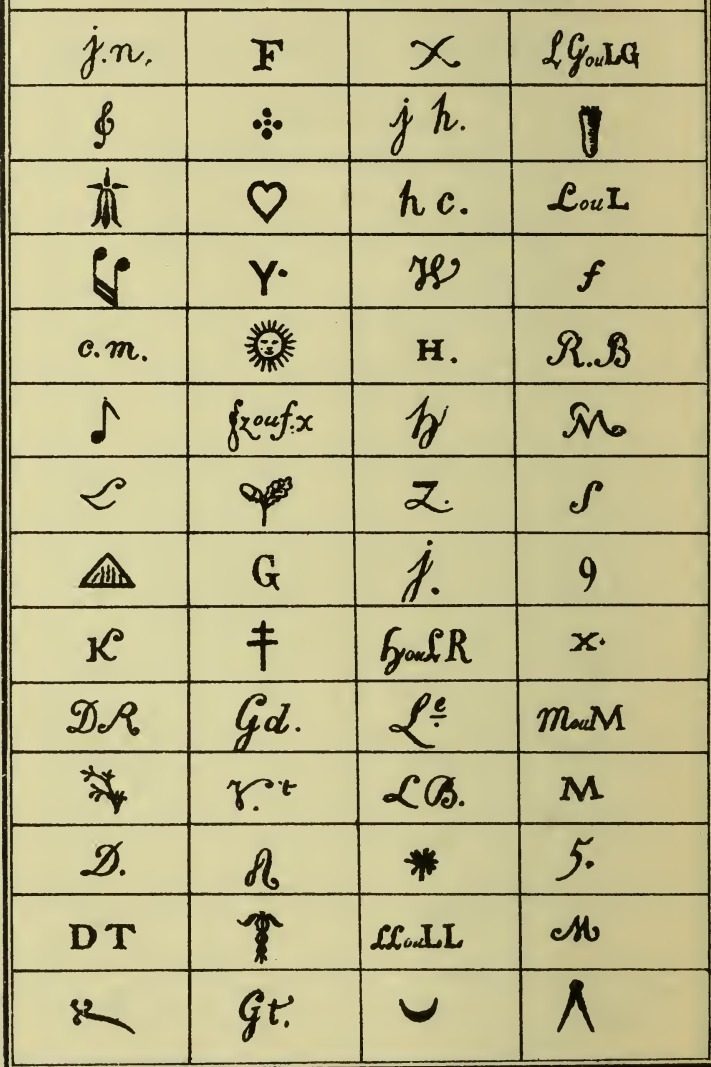 j.n. F LG ou LG
j h.
h c. L ou L
Y. W f
c.m. H. R.B
h M
Z. S
G j. 9
K h ou LR x.
DR Gd. Le m ou M
V.t LB. M
D. 5.
DT LL ou LL M
Gt.